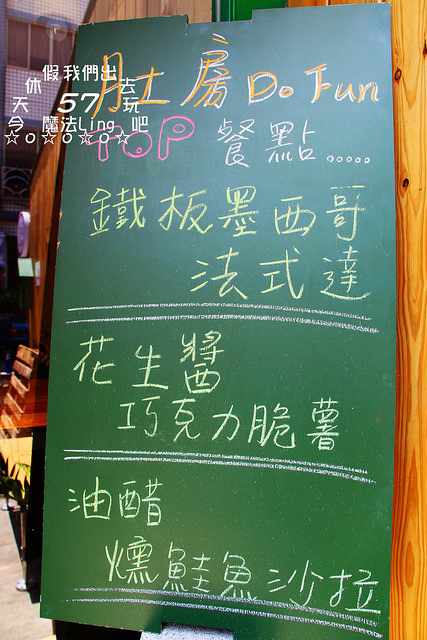 肚房 Do Fun
TOP 餐點.....
鐵板墨西哥
法式達
花生醬
巧克力脆薯
油醋
燻鮭魚沙拉
假我們出
休 57 去
天 玩
今 魔法Ling 吧
☆o☆o☆o☆o☆